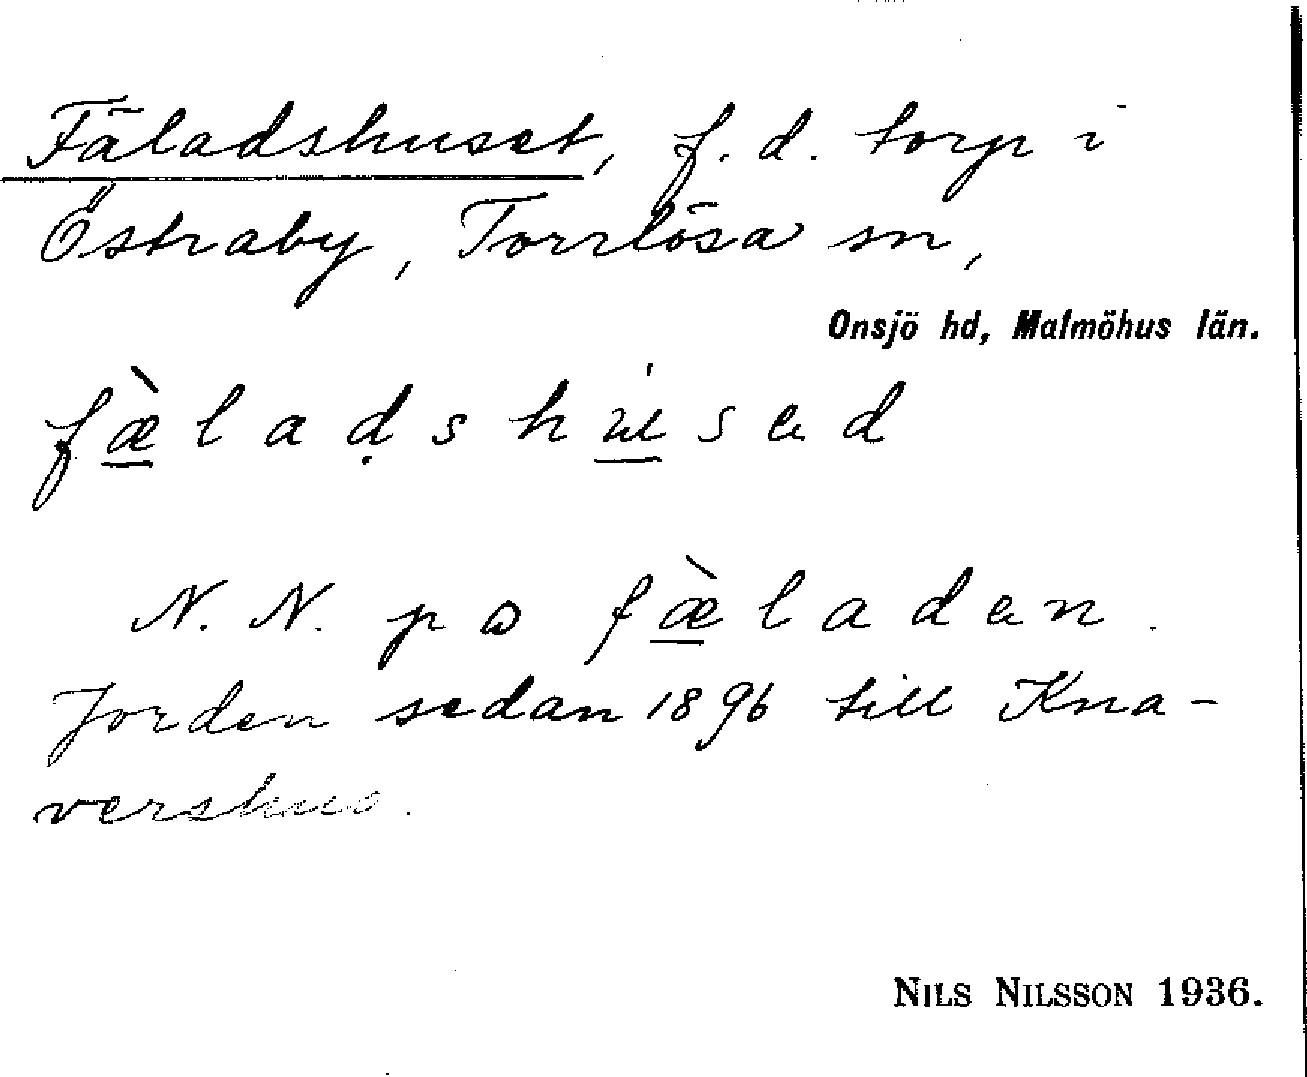 Fäladshuset, f. d. torp i
Östraby, Torrlösa sn,
Onsjö hd, Malmöhus län.
fæ̠̀ladshu̠sed
N. N. po fæ̠̀laden.
Jorden sedan 1896 till Kna-
vershus.
NILS NILSSON 1936.